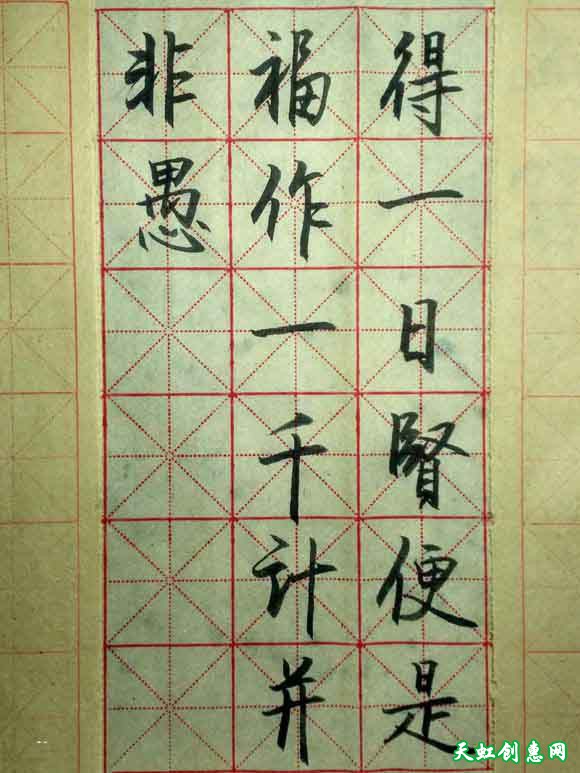 得一日賢便是
福作一千计并
非愚
天虹创惠网